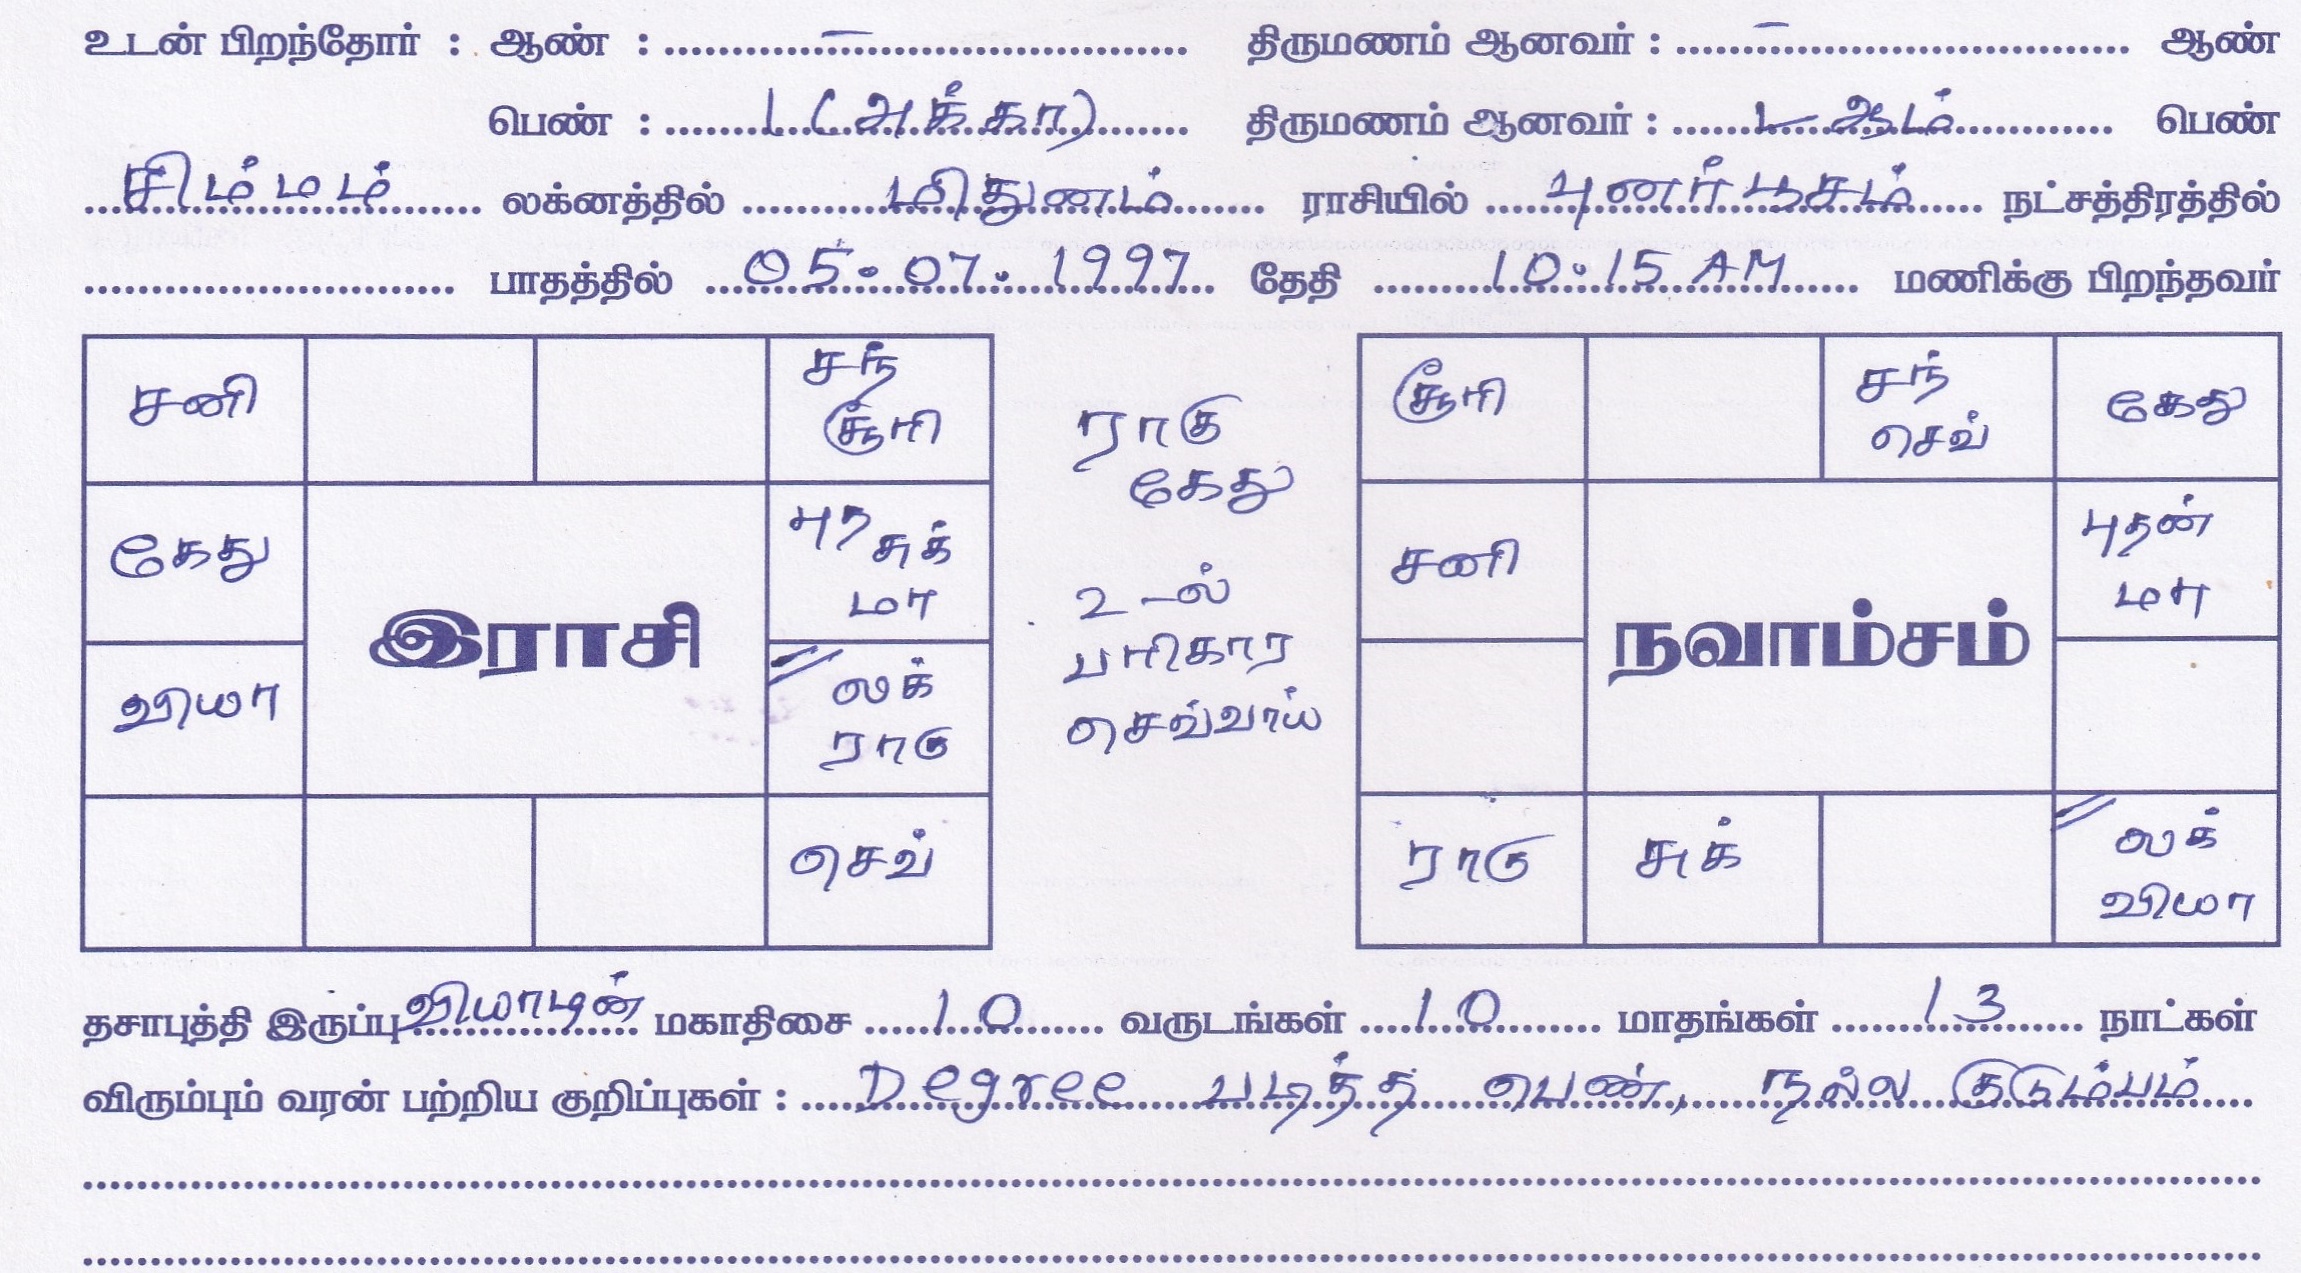 உடன் பிறந்தோர் : ஆண் : .......... – .......... திருமணம் ஆனவர் : .......... – .......... ஆண்
பெண் : .......... 1 (அக்கா) .......... திருமணம் ஆனவர் : .......... 1-ஆம் .......... பெண்
சிம்மம் லக்னத்தில் மிதுனம் ராசியில் புனர்பூசம் நட்சத்திரத்தில்
.......... பாதத்தில் 05.07.1997 தேதி 10.15 AM மணிக்கு பிறந்தவர்
சனி
சந்
சூரி
கேது
புத சுக்
மா
வியா
லக்
ராகு
செவ்
இராசி
ராகு
கேது
2-ல்
பரிகார
செவ்வாய்
சூரி
சந்
செவ்
கேது
சனி
புதன்
மா
நவாம்சம்
ராகு
சுக்
லக்
வியா
தசாபுத்தி இருப்பு வியாழன் மகாதிசை 10 வருடங்கள் 10 மாதங்கள் 13 நாட்கள்
விரும்பும் வரன் பற்றிய குறிப்புகள் : Degree படித்த பெண், நல்ல குடும்பம்